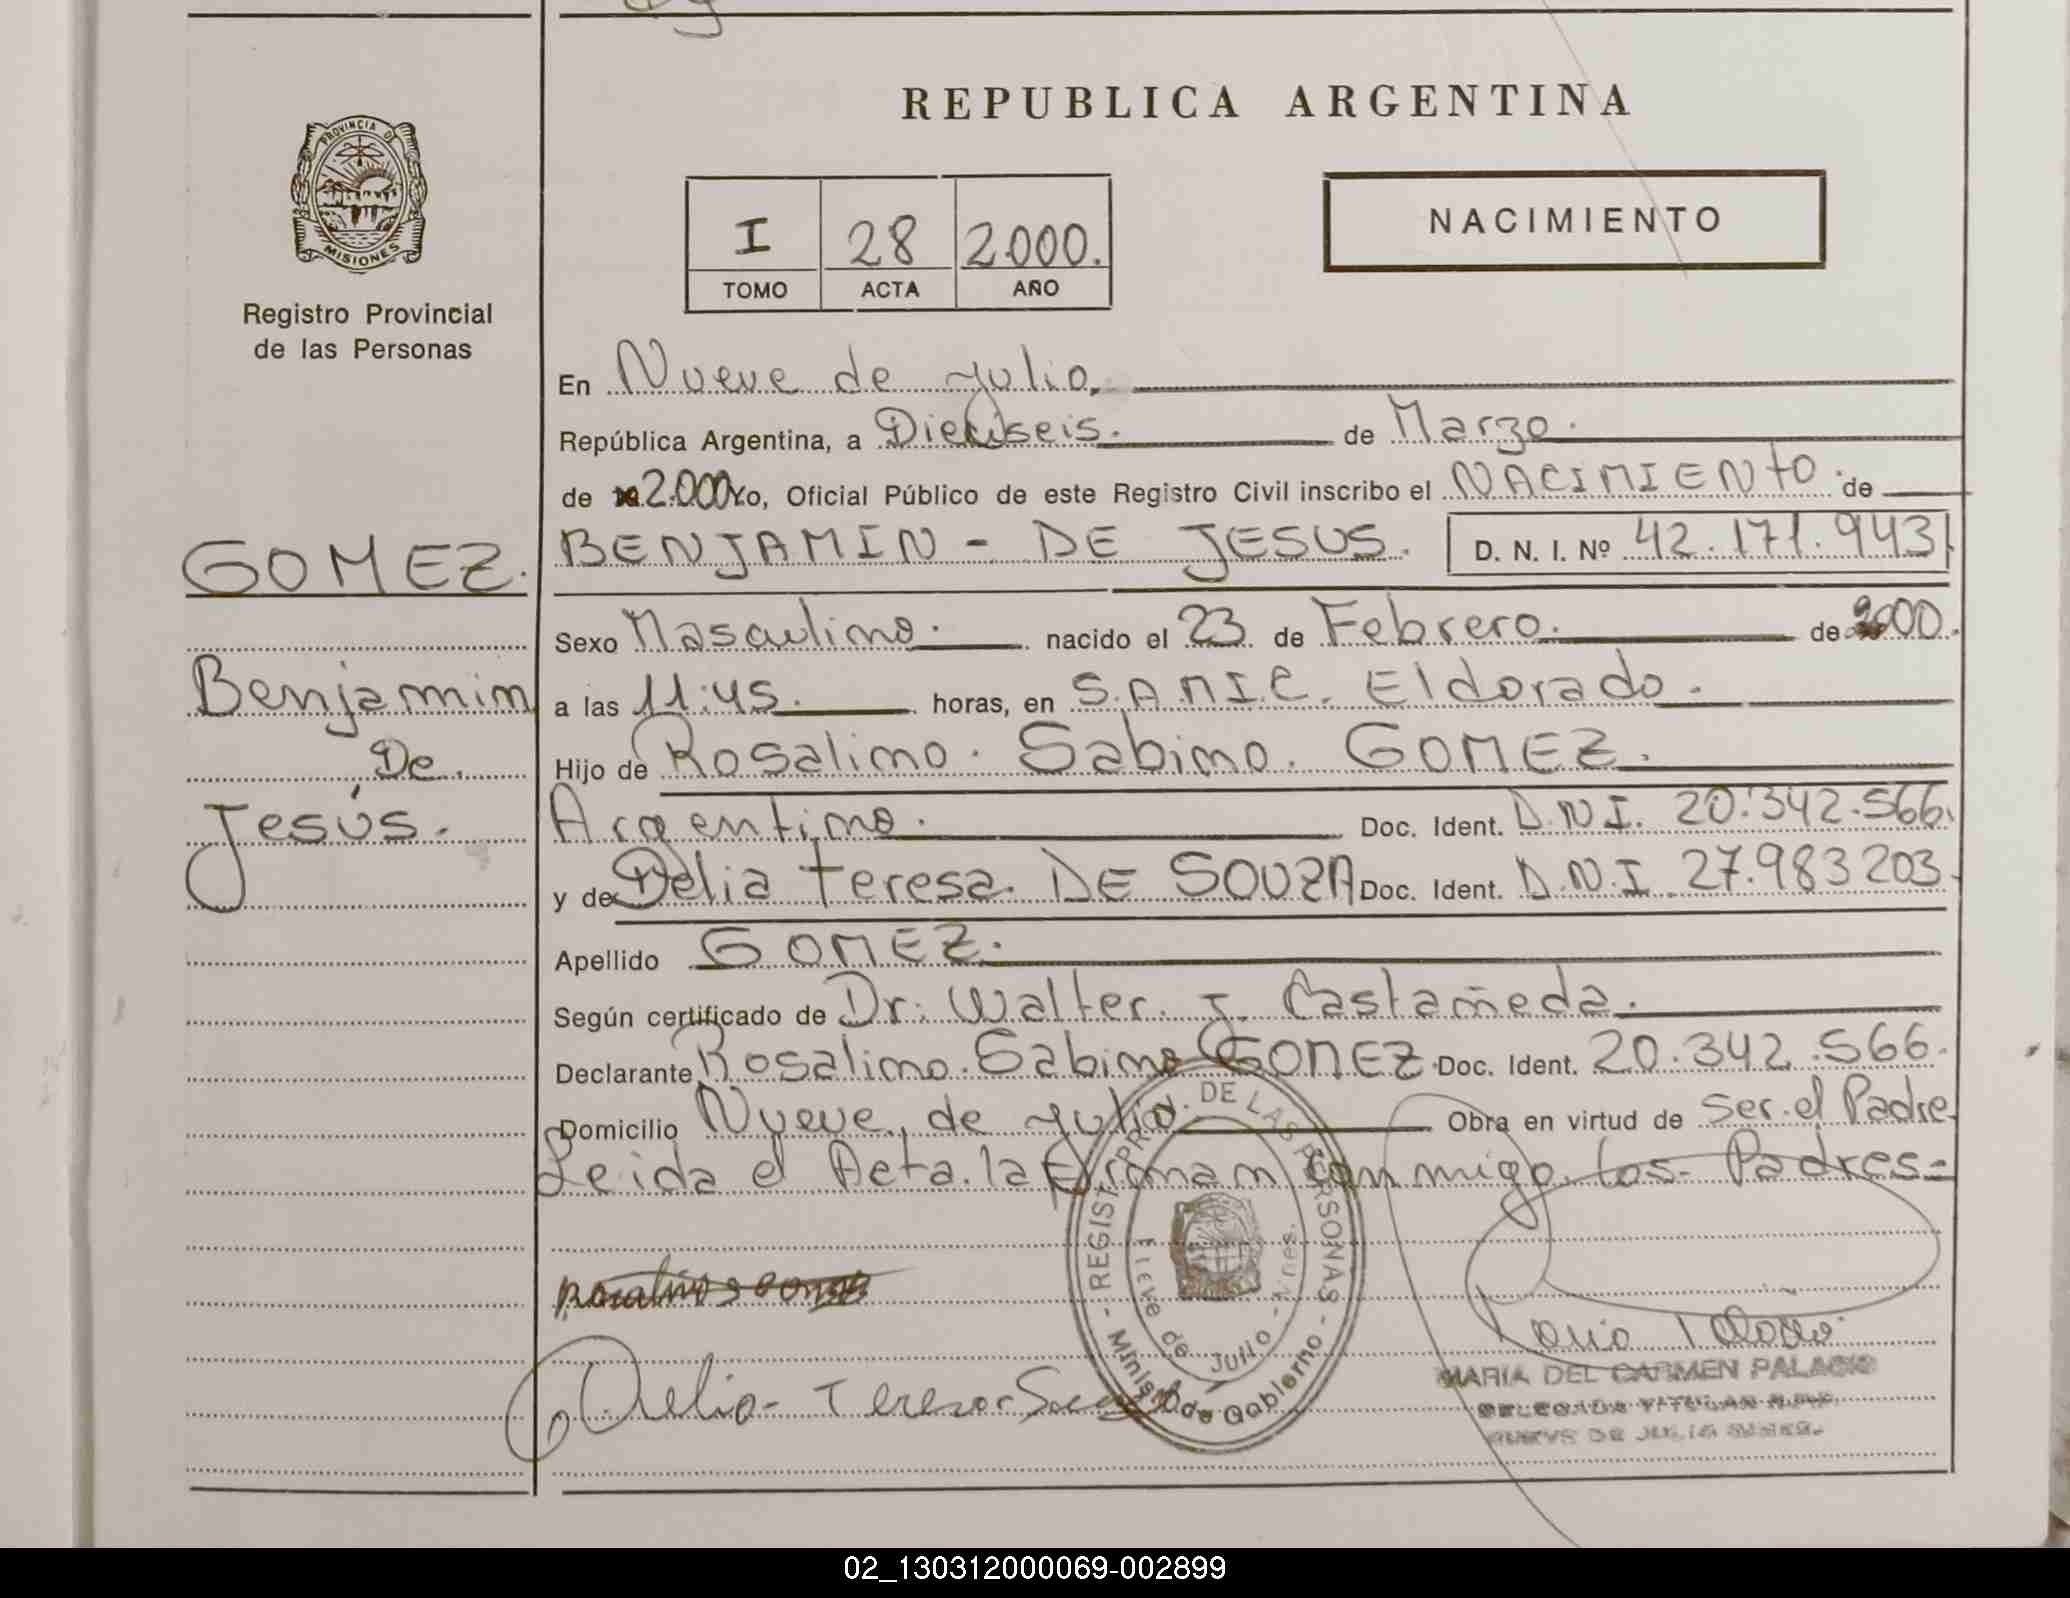 REPUBLICA ARGENTINA
PROVINCIA DE
MISIONES
Registro Provincial
de las Personas
I 28 2000.
TOMO ACTA AÑO
NACIMIENTO
En Nueve de Julio.
República Argentina, a Dieciseis. de Marzo.
de 2.000 Yo, Oficial Público de este Registro Civil inscribo el NACIMIENTO de
GOMEZ.
Benjamin
De
Jesús.
BENJAMIN - DE JESUS. D. N. I. Nº 42.171.943
Sexo Masculino. nacido el 23 de Febrero. de 2000.
a las 11:45. horas, en S.A.M.I.C. Eldorado.
Hijo de Rosalino. Sabino. GOMEZ.
Argentino. Doc. Ident. D.N.I. 20.342.566.
y de Delia Teresa. DE SOUZA Doc. Ident. D.N.I. 27.983203.
Apellido GOMEZ.
Según certificado de Dr. Walter. J. Castañeda.
Declarante Rosalino. Sabino GOMEZ. Doc. Ident. 20.342.566.
Domicilio Nueve, de Julio. Obra en virtud de Ser. el Padre
Leida el Acta. la Firman conmigo. los- Padres=
- REGIST. PROV. DE LAS PERSONAS -
Nueve de Julio - Mnes.
Minist. de Gobierno
Delia Teresa
MARIA DEL CARMEN PALACIO
NUEVE DE JULIO
02_130312000069-002899